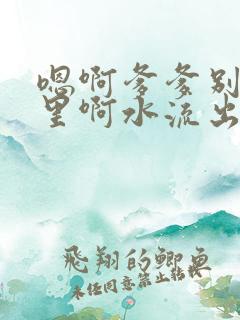 嗯啊爹爹别
里啊水流出
飛翔的鲫魚
未经同意禁止转载